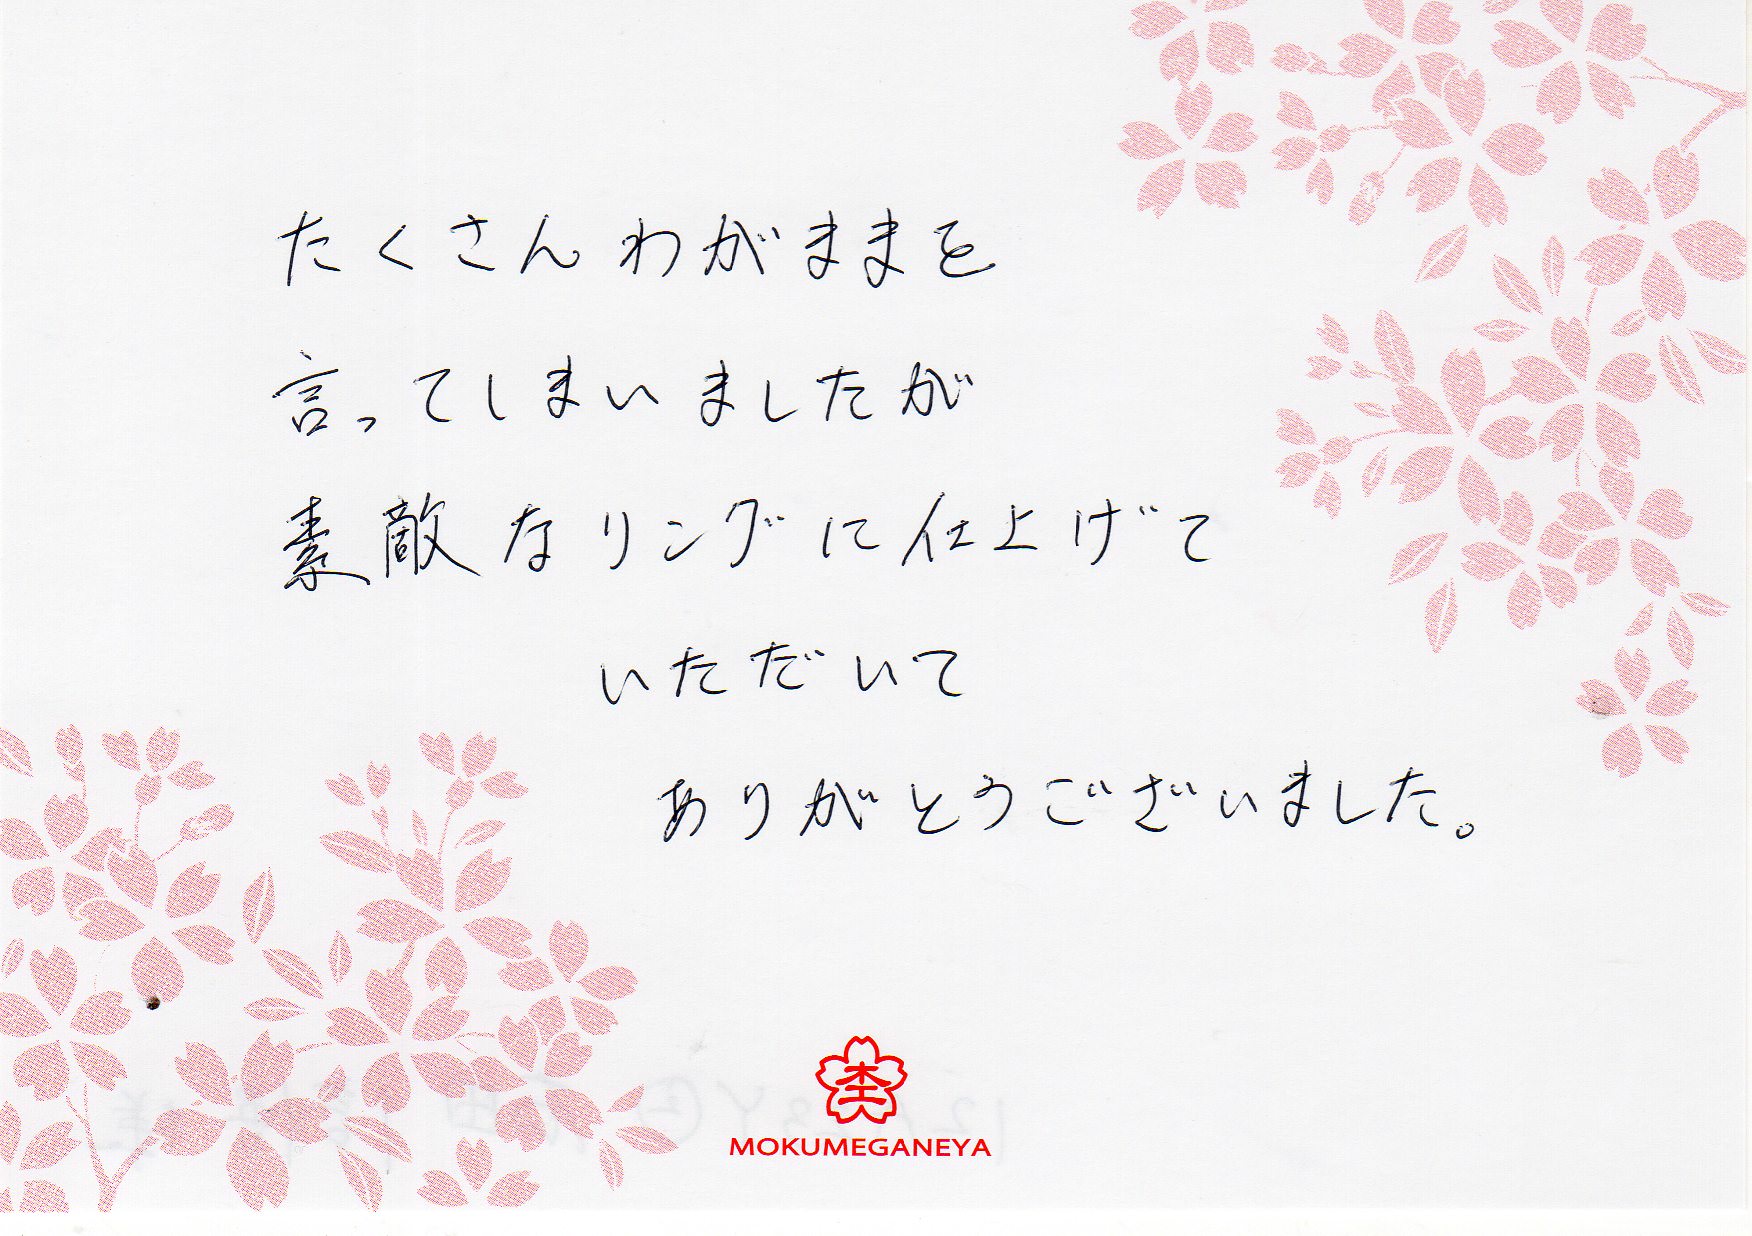 たくさんわがままを
言ってしまいましたが
素敵なリングに仕上げて
いただいて
ありがとうございました。
MOKUMEGANEYA